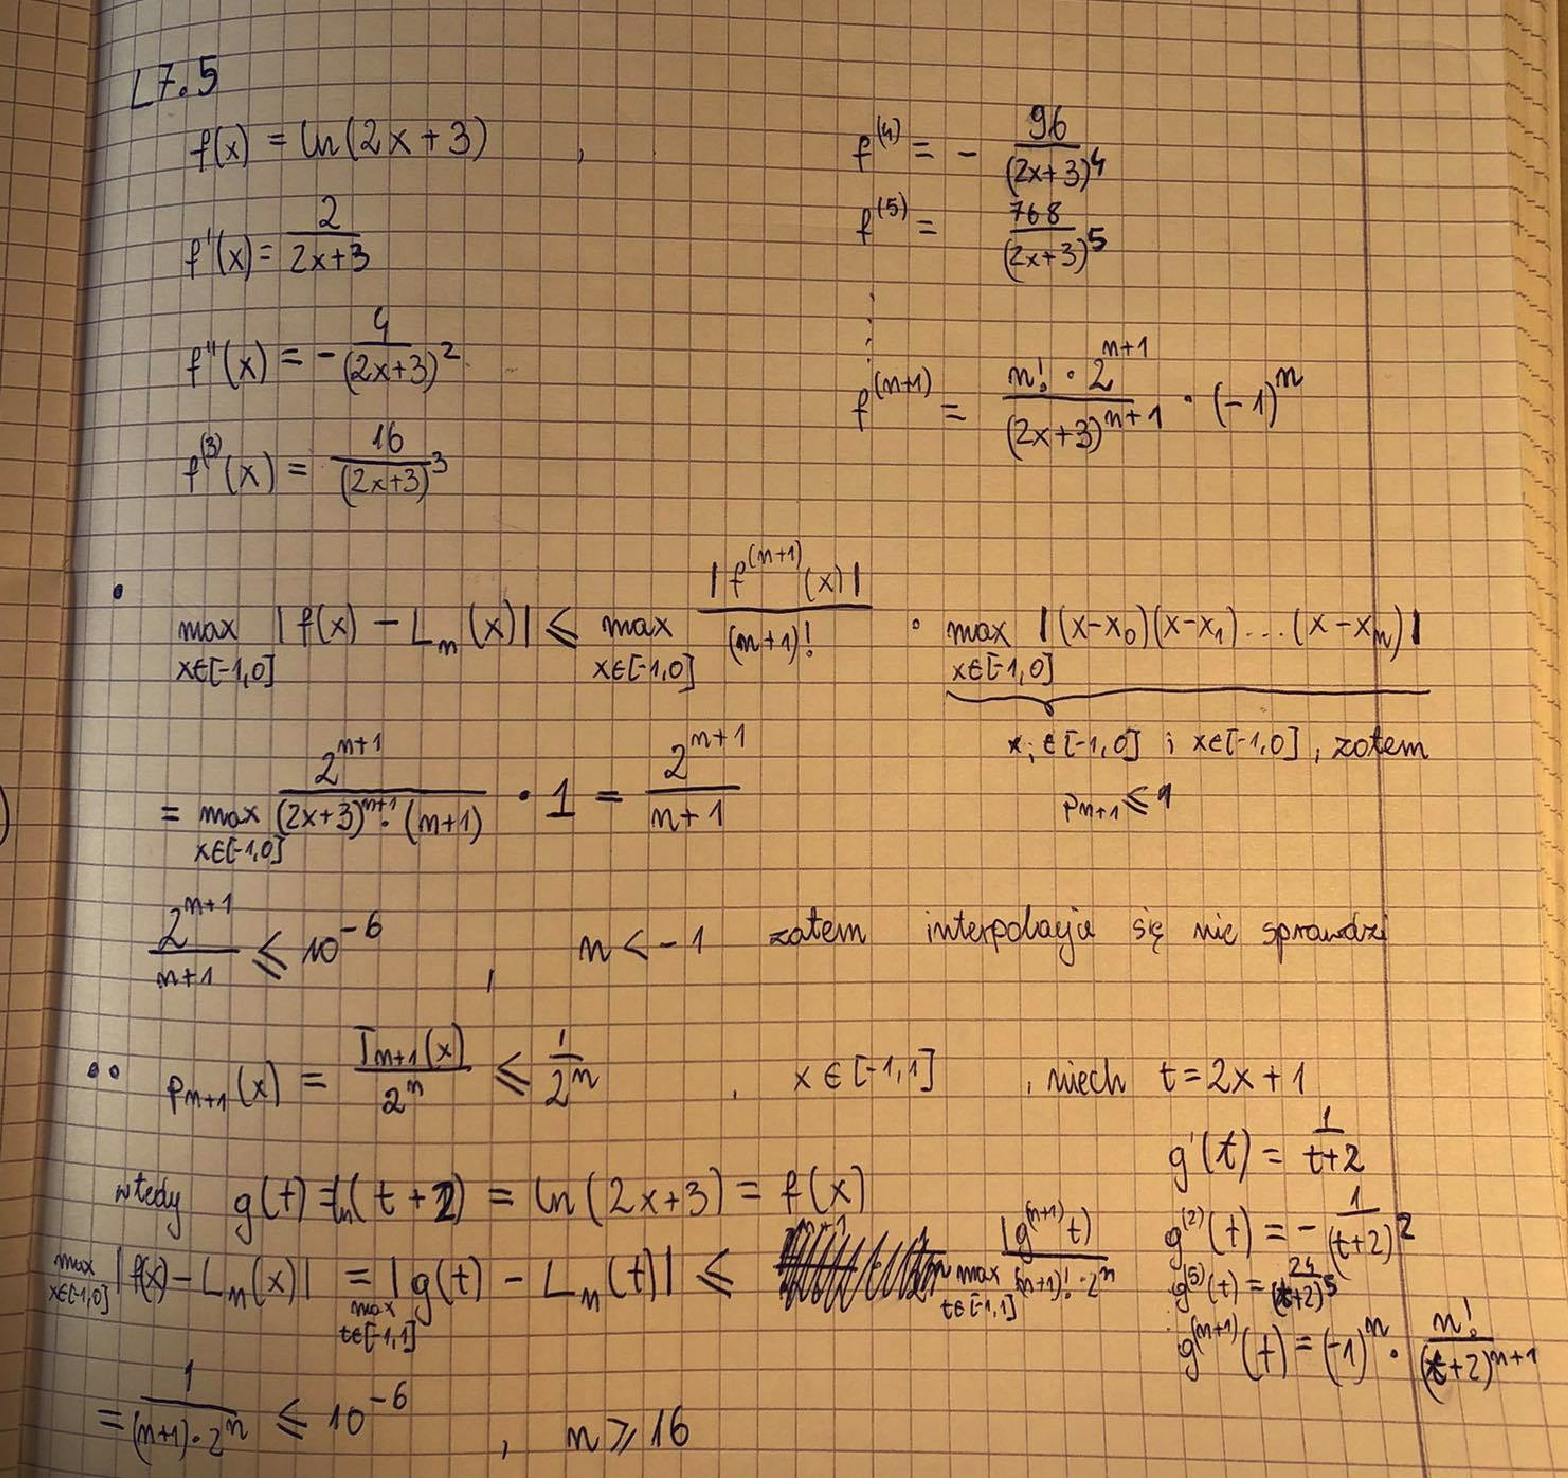 L7.5
f(x) = ln(2x+3) ,
f'(x) = 2/(2x+3)
f''(x) = - 4/(2x+3)^2
f^(3)(x) = 16/(2x+3)^3
f^(4) = - 96/(2x+3)^4
f^(5) = 768/(2x+3)^5
⋮
f^(n+1) = (n! · 2^(n+1))/(2x+3)^(n+1) · (-1)^n
• max_{x∈[-1,0]} |f(x) - L_n(x)| ≤ max_{x∈[-1,0]} |f^(n+1)(x)|/(n+1)! · max_{x∈[-1,0]} |(x-x_0)(x-x_1)...(x-x_n)|
x_i ∈[-1,0] i x∈[-1,0], zatem
p_{n+1} ≤ 1
= max_{x∈[-1,0]} 2^(n+1)/((2x+3)^(n+1) · (n+1)) · 1 = 2^(n+1)/(n+1)
2^(n+1)/(n+1) ≤ 10^-6 , n < -1 zatem interpolacja się nie sprawdzi
•• p_{n+1}(x) = T_{n+1}(x)/2^n ≤ 1/2^n , x∈[-1,1] , niech t = 2x+1
wtedy g(t) = ln(t+2) = ln(2x+3) = f(x)
g'(t) = 1/(t+2)
g^(2)(t) = - 1/(t+2)^2
g^(5)(t) = 24/(t+2)^5
g^(n+1)(t) = (-1)^n · n!/(t+2)^(n+1)
max_{x∈[-1,0]} |f(x) - L_n(x)| = max_{t∈[-1,1]} |g(t) - L_n(t)| ≤ max_{t∈[-1,1]} |g^(n+1)t)/((n+1)! · 2^n)
= 1/((n+1)·2^n) ≤ 10^-6 , n ≥ 16